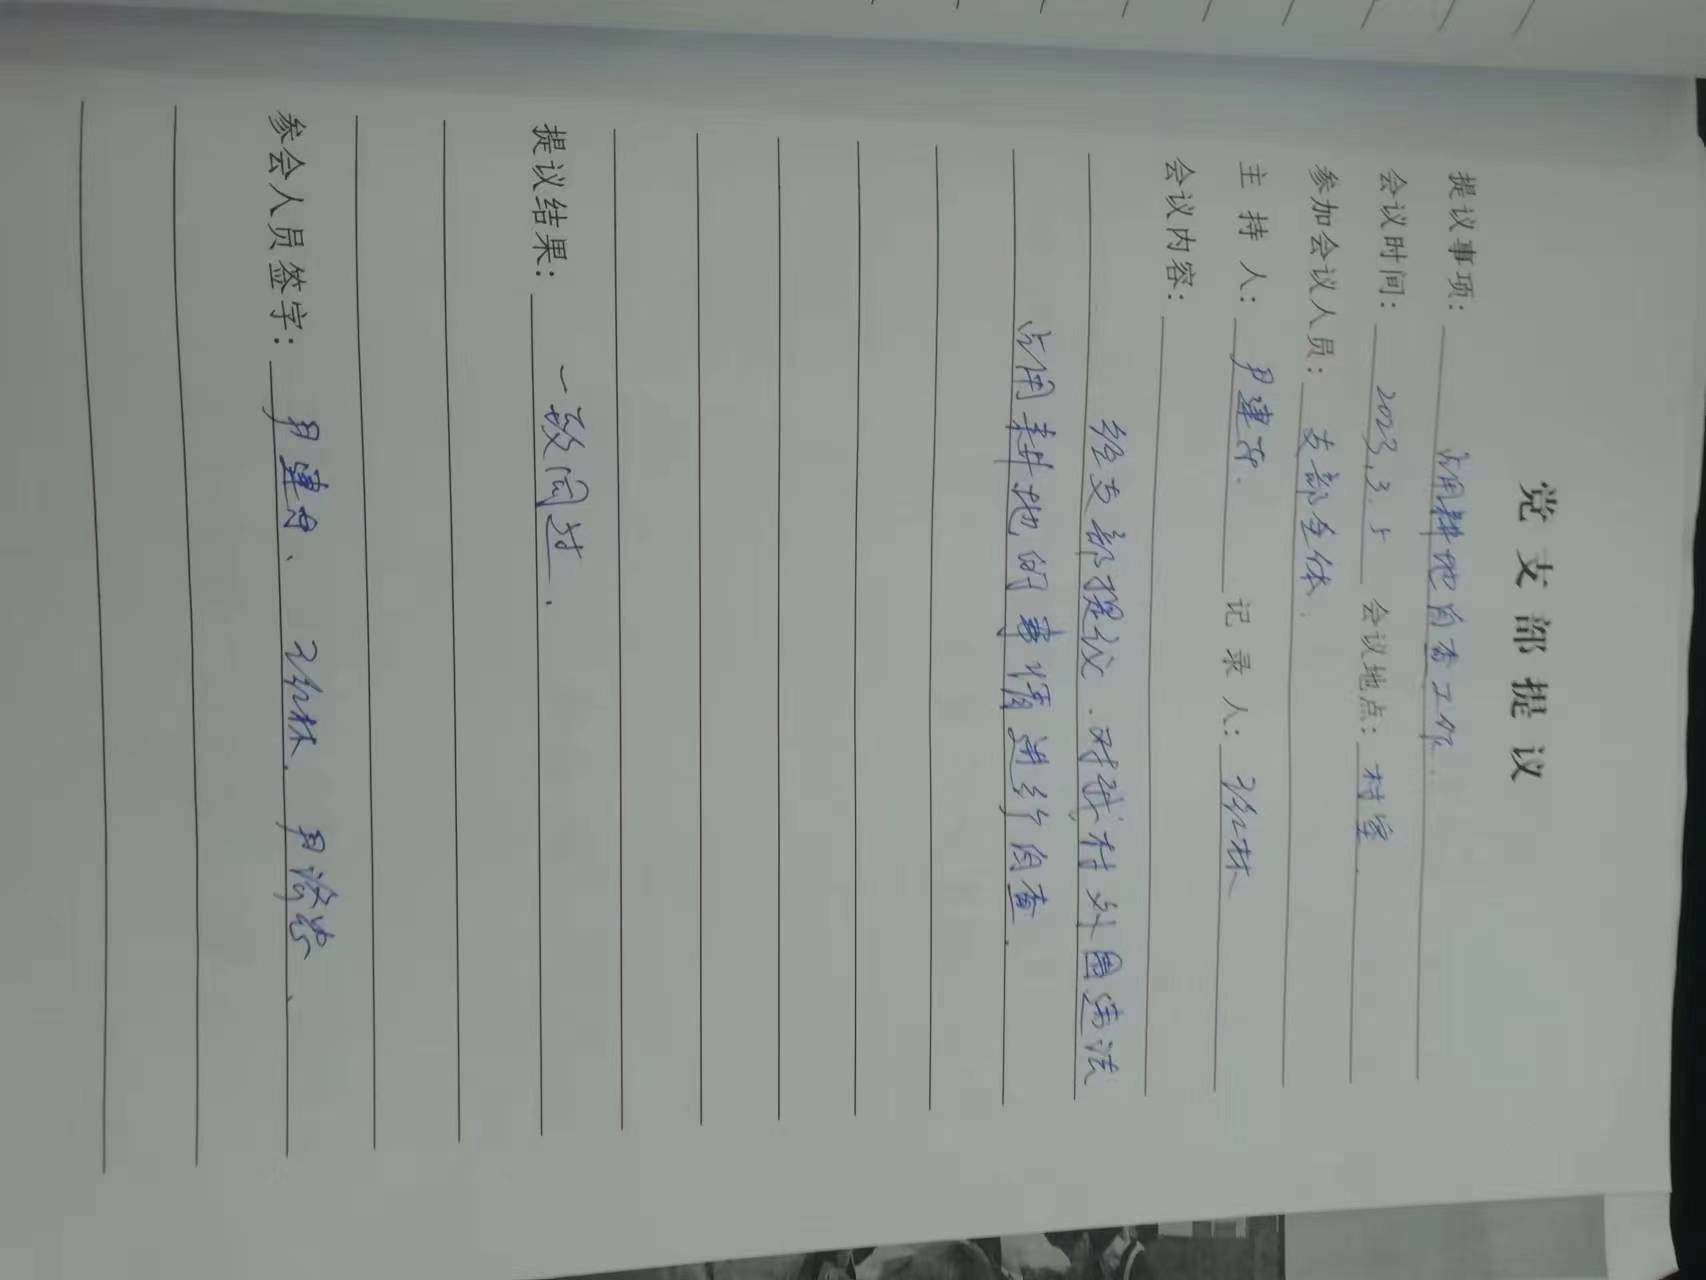 党支部提议
提议事项: 占用耕地自查工作.
会议时间: 2023.3.5 会议地点: 村室.
参加会议人员: 支部全体.
主持人: 尹建 记录人: 林
会议内容:
经支部提议.对我村外围违法
占用耕地的事情进行自查.
提议结果: 一致同过.
参会人员签字: 尹建 、 林. 尹